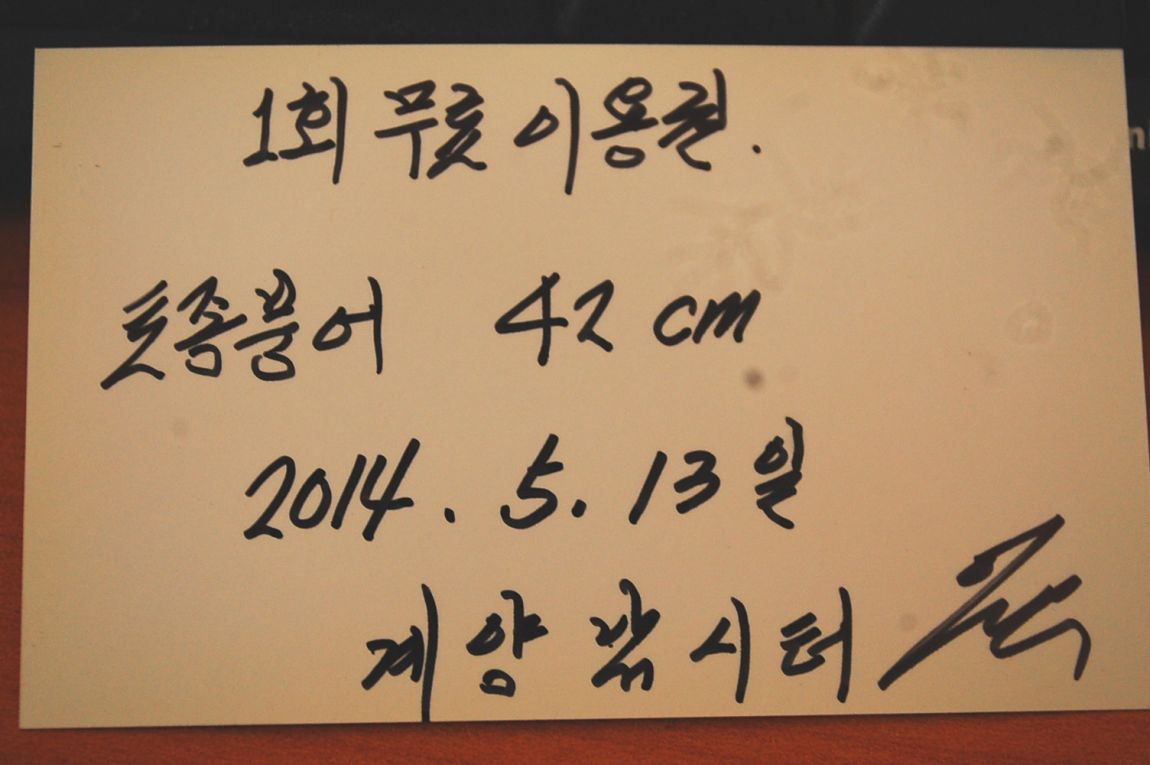 1회 무료 이용권.
토종붕어 42 cm
2014. 5. 13일
계양낚시터